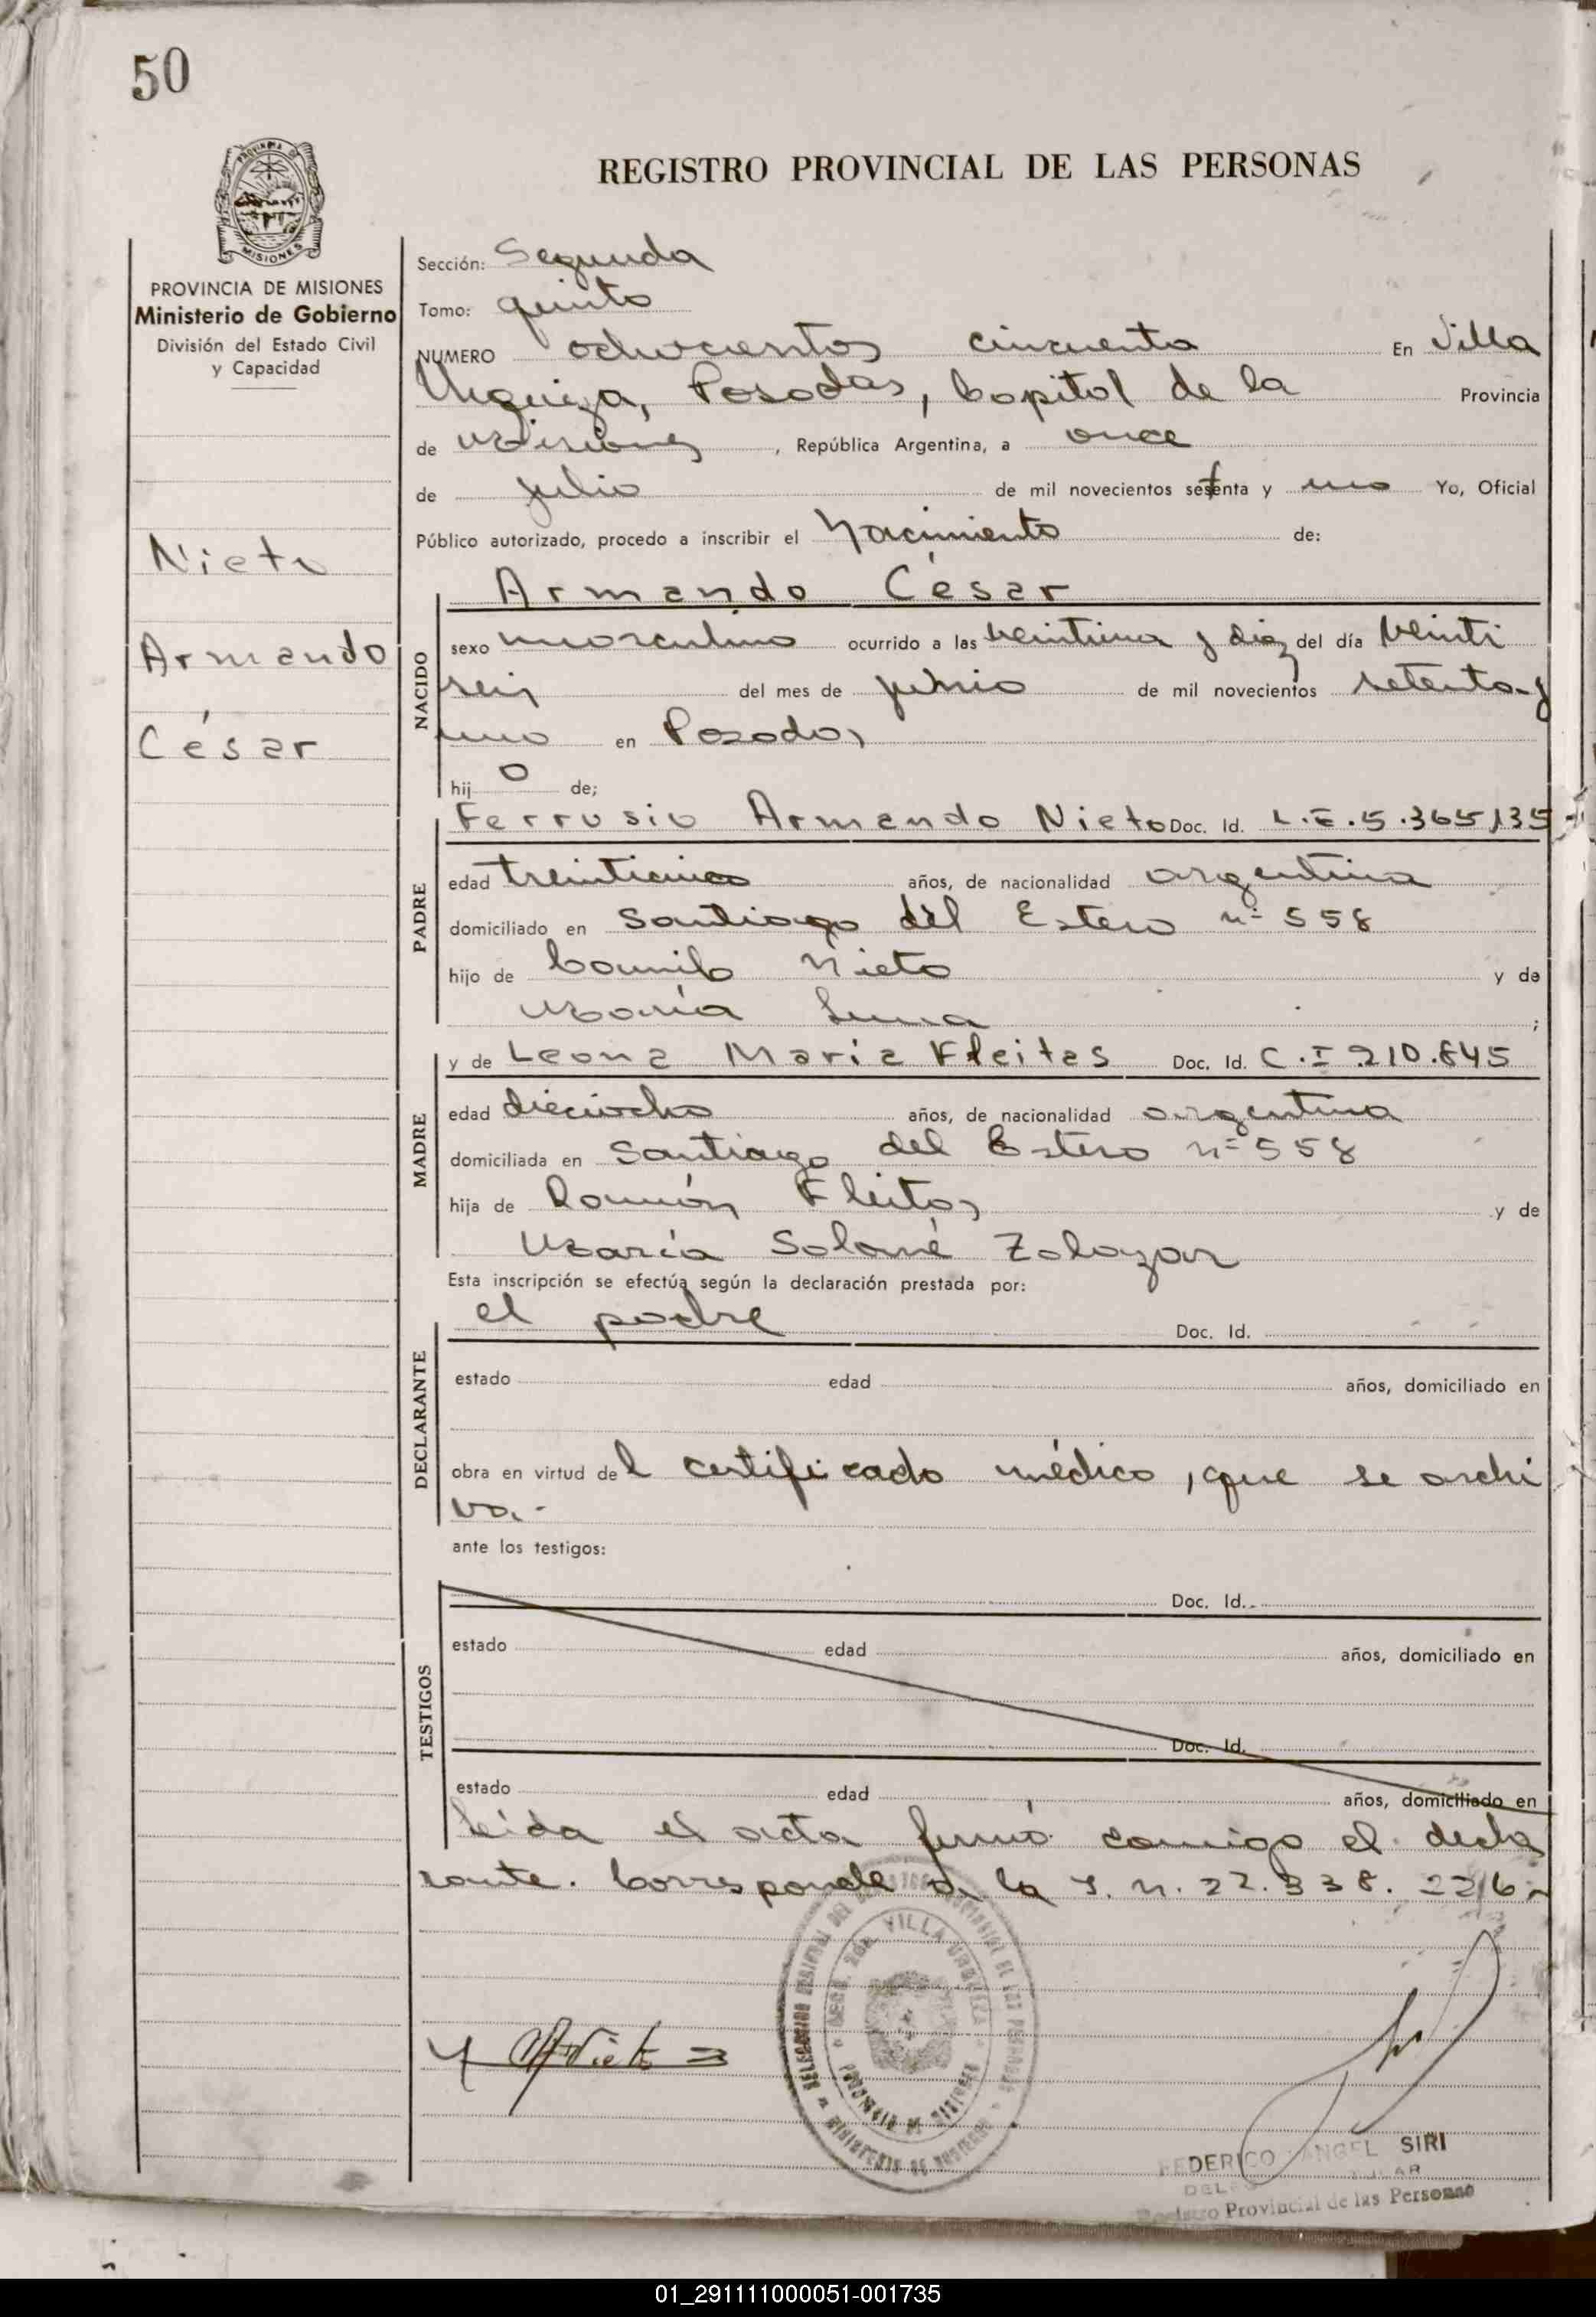 50
PROVINCIA DE
MISIONES
PROVINCIA DE MISIONES
Ministerio de Gobierno
División del Estado Civil
y Capacidad
Nieto
Armando
César
REGISTRO PROVINCIAL DE LAS PERSONAS
Sección: Segunda
Tomo: quinto
NUMERO ochocientos cincuenta En Villa
Urquiza, Posadas, Capital de la Provincia
de Misiones, República Argentina, a once
de julio de mil novecientos setenta y uno Yo, Oficial
Público autorizado, procedo a inscribir el Nacimiento de:
Armando César
NACIDO
sexo masculino ocurrido a las veintiuna y diez del día veinti
seis del mes de junio de mil novecientos setenta y
uno en Posadas
hijo de;
Ferrusio Armando Nieto Doc. Id. L.E.5.365,135
PADRE
edad treinticinco años, de nacionalidad argentina
domiciliado en Santiago del Estero nº 558
hijo de Camilo Nieto y de
María Luna;
y de Leona María Fleitas Doc. Id. C.I 210.845
MADRE
edad dieciocho años, de nacionalidad argentina
domiciliada en Santiago del Estero nº 558
hija de Ramón Fleitas y de
María Salomé Zalazar
Esta inscripción se efectúa según la declaración prestada por:
el padre Doc. Id.
DECLARANTE
estado edad años, domiciliado en
obra en virtud del certificado médico, que se archi
va.-
ante los testigos:
TESTIGOS
Doc. Id.
estado edad años, domiciliado en
Doc. Id.
estado edad años, domiciliado en
Leída el acta firmó conmigo el decla
rante. Corresponde a la 22.338.
VILLA URQUIZA
PROVINCIA DE MISIONES
Nieto
FEDERICO ANGEL SIRI
Registro Provincial de las Personas
01_291111000051-001735